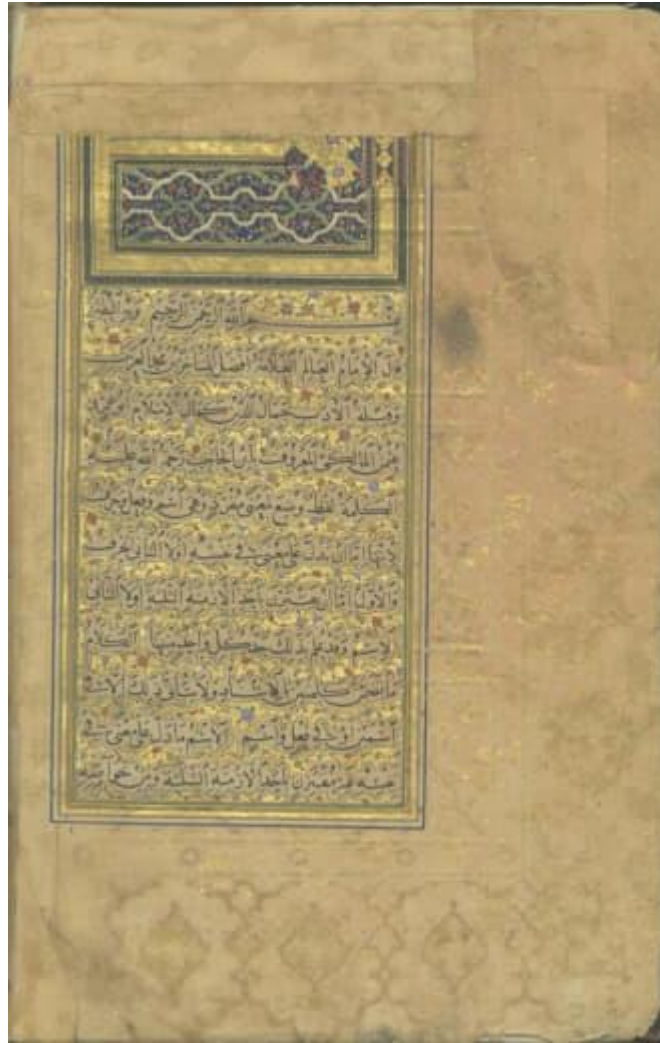 بسم الله الرحمن الرحيم
قال الإمام العالم العلامة افضل المتاخرين
وقبلة الأدب جمال الدين كمال الإسلام
عثمن المالكي المعروف بابن الحاجب رحمة الله عليه
الكلمة لفظ وضع لمعنى مفرد وهي اسم وفعل وحرف
لانها اما ان تدل على معنى في نفسه اولا الثاني الحرف
والاول اما ان يقترن باحد الازمنة الثلثة اولا الثاني
الاسم وقد علم بذلك حد كل واحد منها الكلام
ما تضمن كلمتين بالاسناد ولا يتاتى ذلك الا في
اسمين او في فعل واسم الاسم ما دل على معنى في
نفسه غير مقترن باحد الازمنة الثلثة ومن خواصه